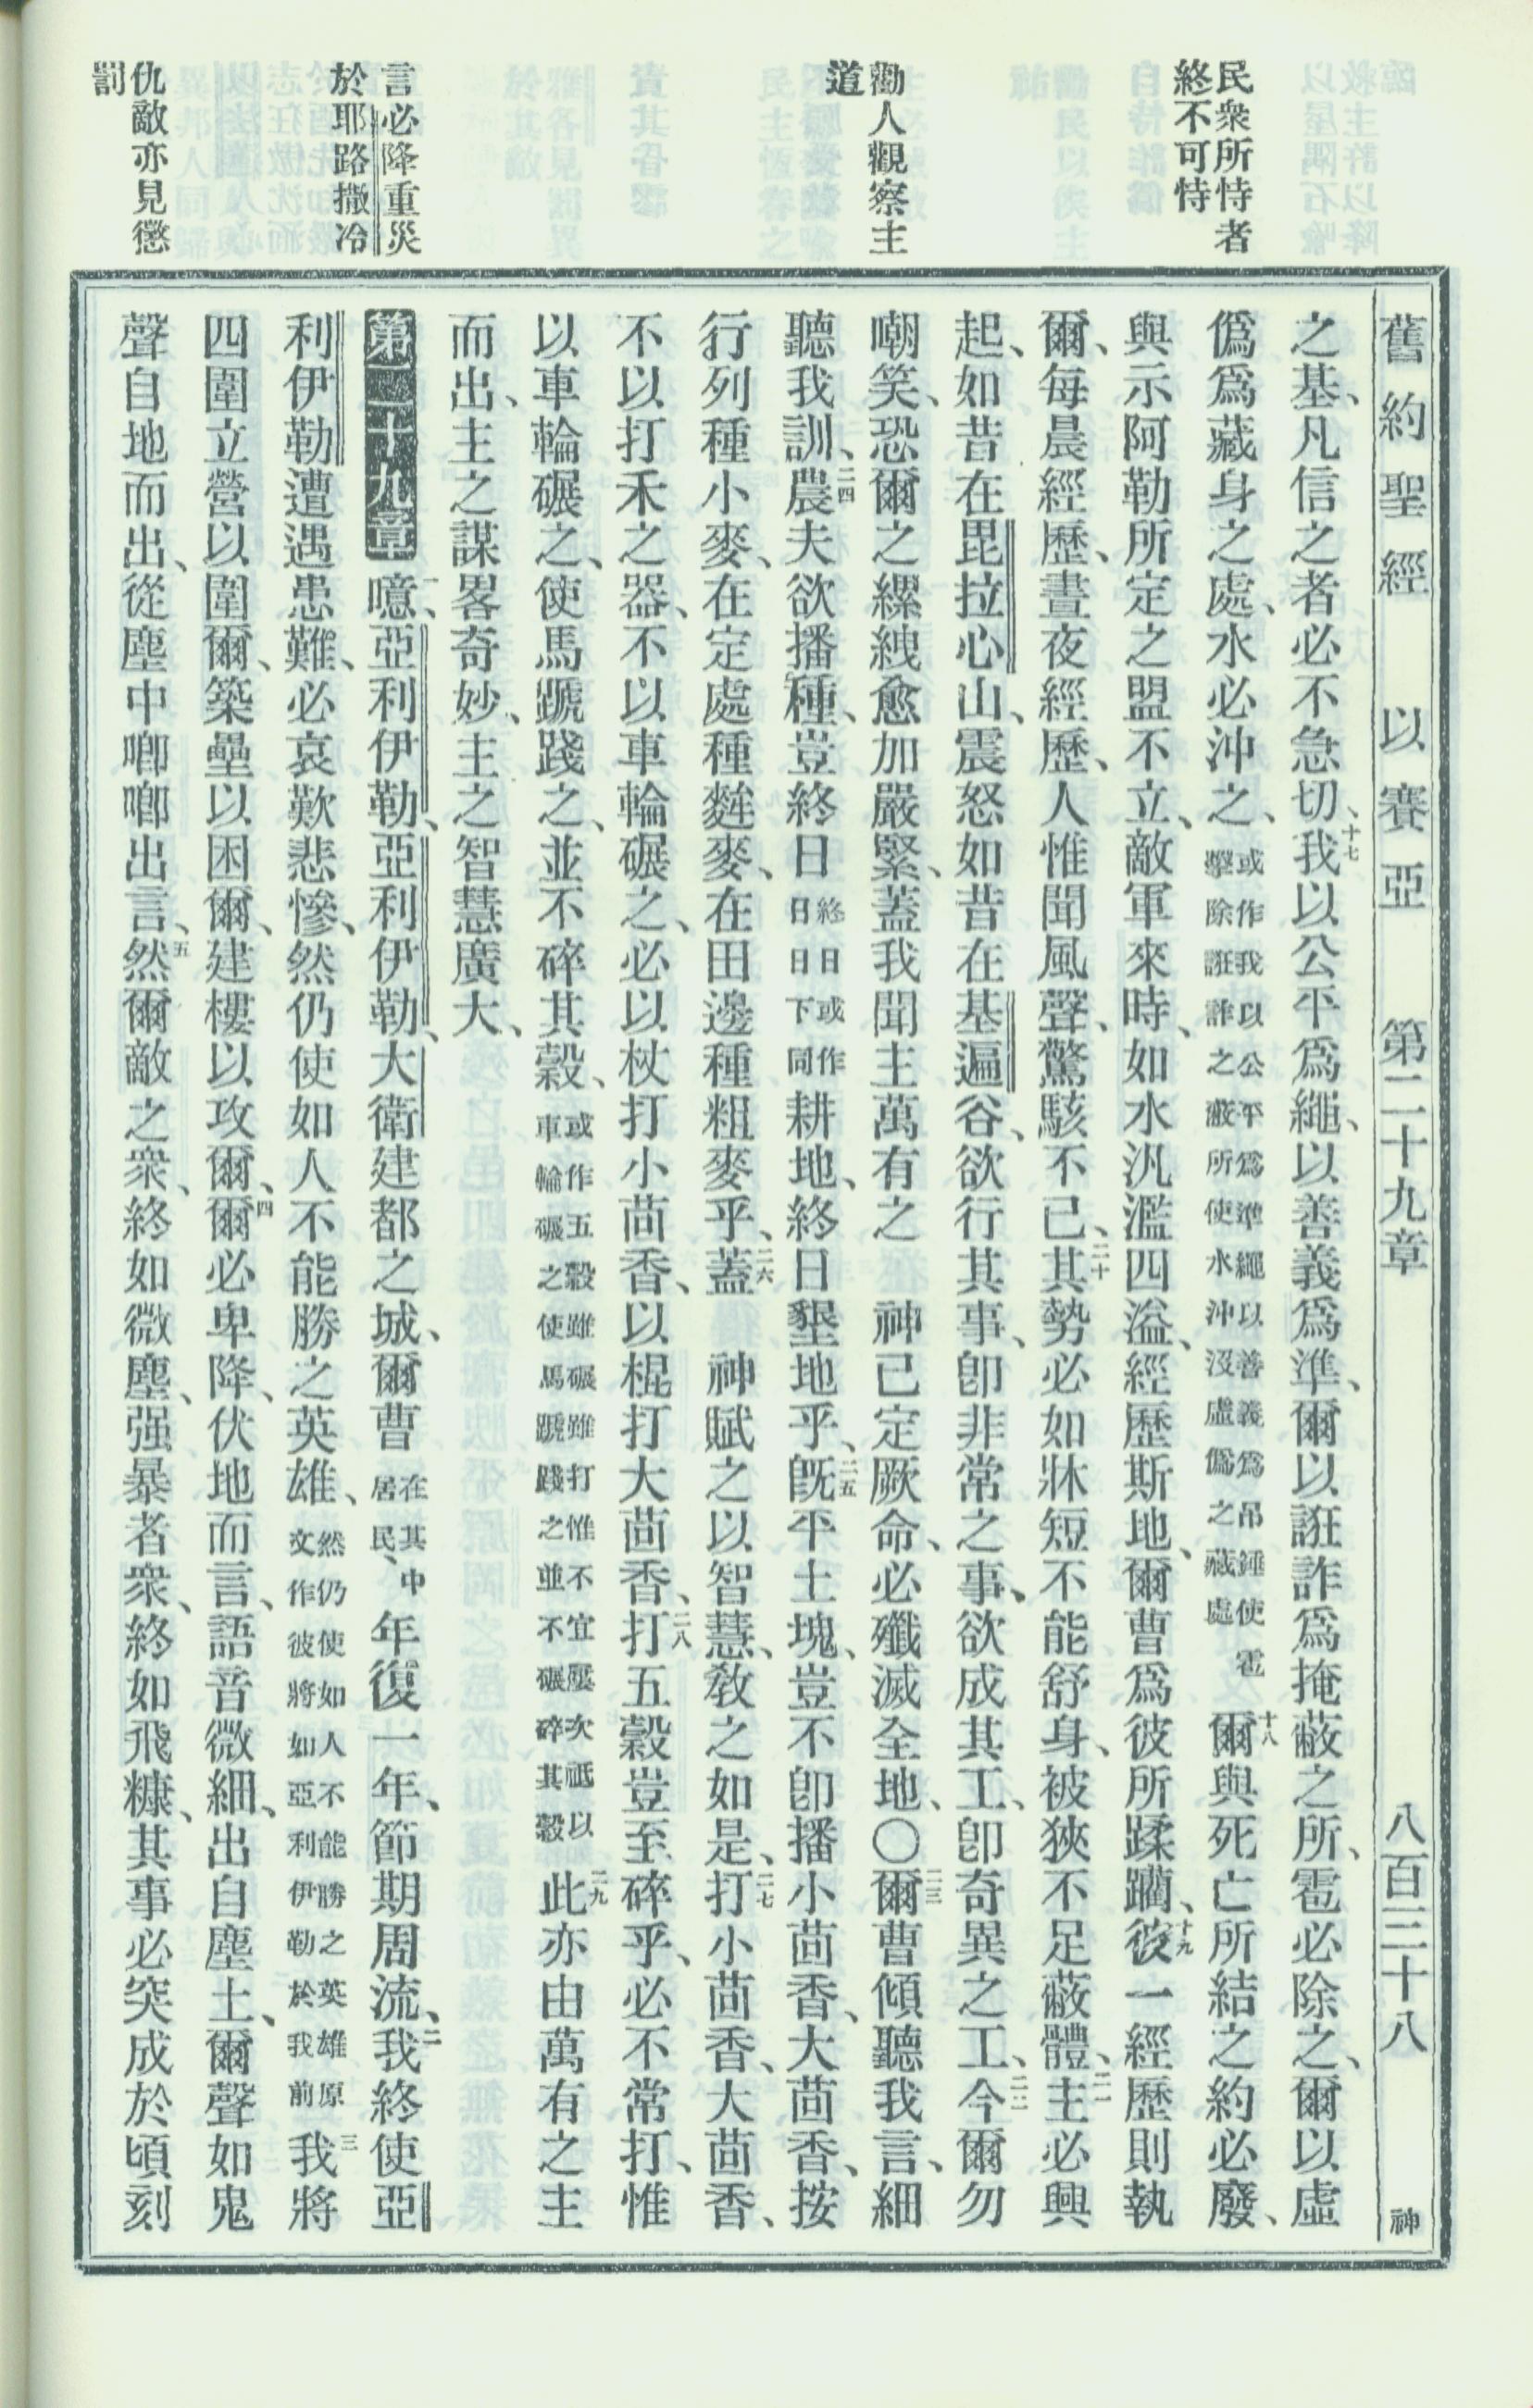 民衆所恃者
終不可恃
勸人觀察主
道
言必降重災
於耶路撒冷
仇敵亦見懲
罰
舊約聖經 以賽亞 第二十九章 八百三十八 神
之基、凡信之者必不急切、十七我以公平爲繩、以善義爲準、爾以誑詐爲掩蔽之所、雹必除之、爾以虛
僞爲藏身之處、水必沖之、或作我以公平爲準繩以善義爲吊錘使雹擊除誑詐之蔽所使水沖沒虛僞之藏處十八爾與死亡所結之約必廢、
與示阿勒所定之盟不立、敵軍來時、如水汎濫四溢、經歷斯地、爾曹爲彼所蹂躪、十九彼一經歷則執
爾、每晨經歷、晝夜經歷、人惟聞風聲、驚駭不已、二十其勢必如牀短不能舒身、被狹不足蔽體、二一主必興
起、如昔在毘拉心山、震怒如昔在基遍谷、欲行其事、卽非常之事、欲成其工、卽奇異之工、二二今爾勿
嘲笑、恐爾之縲絏愈加嚴緊、蓋我聞主萬有之 神已定厥命、必殲滅全地、〇二三爾曹傾聽我言、細
聽我訓、二四農夫欲播種、豈終日終日或作日日下同耕地、終日墾地乎、二五旣平土塊、豈不卽播小茴香、大茴香、按
行列種小麥、在定處種麰麥、在田邊種粗麥乎、二六蓋 神賦之以智慧、敎之如是、二七打小茴香、大茴香、
不以打禾之器、不以車輪碾之、必以杖打小茴香、以棍打大茴香、二八打五穀豈至碎乎、必不常打、惟
以車輪碾之、使馬蹏踐之、並不碎其穀、或作五穀雖碾雖打惟不宜屢次祗以車輪碾之使馬蹏踐之並不碾碎其穀二九此亦由萬有之主
而出、主之謀畧奇妙、主之智慧廣大、
第二十九章 一噫、亞利伊勒、亞利伊勒、大衛建都之城、爾曹在其中居民、年復一年、節期周流、二我終使亞
利伊勒遭遇患難、必哀歎悲慘、然仍使如人不能勝之英雄、然仍使如人不能勝之英雄原文作彼將如亞利伊勒於我前三我將
四圍立營以圍爾、築壘以困爾、建樓以攻爾、四爾必卑降、伏地而言、語音微細、出自塵土、爾聲如鬼
聲自地而出、從塵中啣啣出言、五然爾敵之衆、終如微塵、强暴者衆、終如飛糠、其事必突成於頃刻